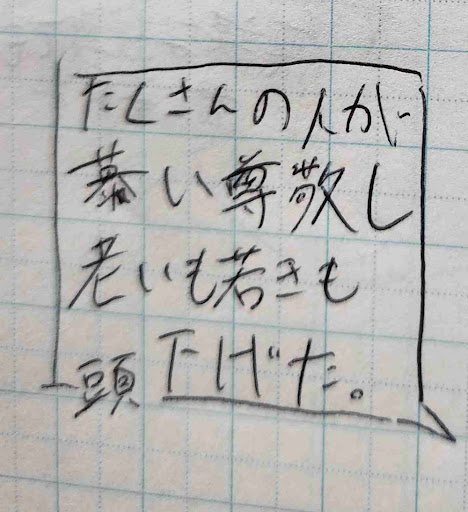 たくさんの人が
慕い尊敬し
老いも若きも
頭下げた。